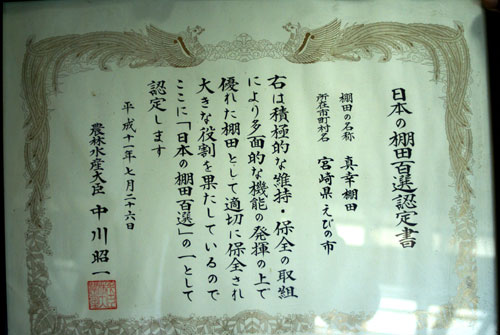 日本の棚田百選認定書
棚田の名称　真幸棚田
所在市町村名　宮崎県えびの市
右は積極的な維持・保全の取組
により多面的な機能の発揮の上で
優れた棚田として適切に保全され
大きな役割を果たしているので
ここに「日本の棚田百選」の一として
認定します
平成十一年七月二十六日
農林水産大臣　中川昭一